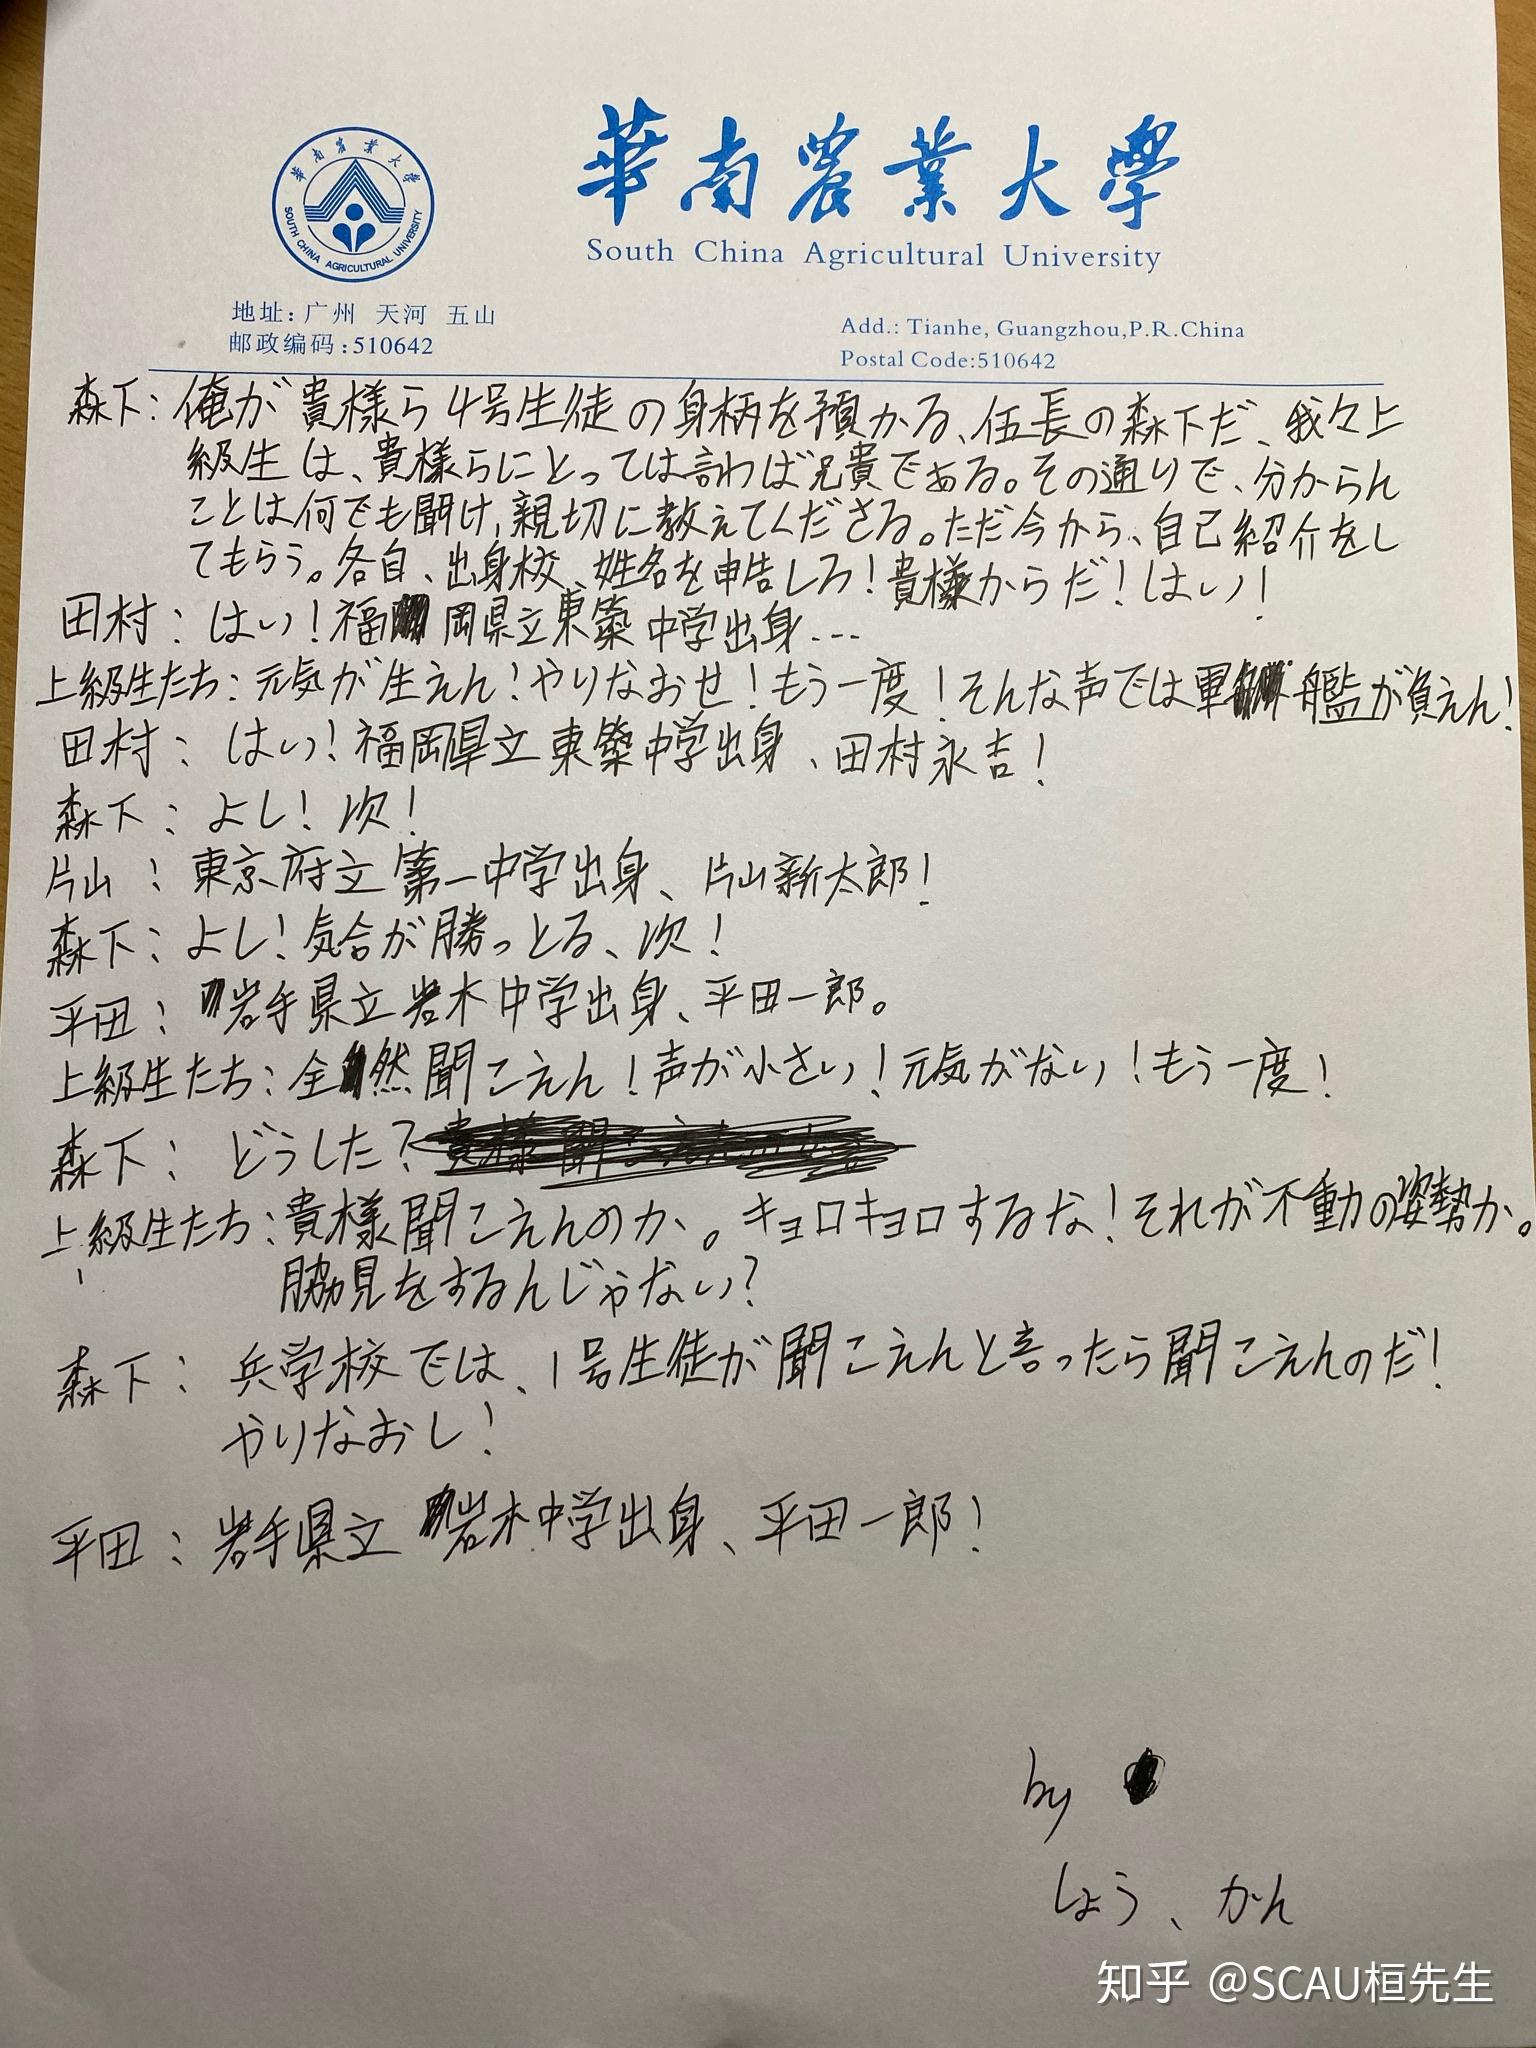 華南農業大學
South China Agricultural University
華南農業大學
SOUTH CHINA AGRICULTURAL UNIVERSITY
地址:广州 天河 五山
邮政编码:510642
Add.: Tianhe, Guangzhou,P.R.China
Postal Code:510642
森下:俺が貴様ら4号生徒の身柄を預かる、伍長の森下だ、我々上
級生は、貴様らにとっては言わば兄貴である。その通りで、分からん
ことは何でも聞け,親切に教えてくださる。ただ今から、自己紹介をし
てもらう。各自、出身校、姓名を申告しろ!貴様からだ!はい!
田村:はい!福岡県立東築中学出身...
上級生たち:元気が生えん!やりなおせ!もう一度!そんな声では軍艦が負えん!
田村:はい!福岡県立東築中学出身、田村永吉!
森下:よし!次!
片山:東京府立第一中学出身、片山新太郎!
森下:よし!気合が勝っとる、次!
平田:岩手県立岩木中学出身、平田一郎。
上級生たち:全然聞こえん!声が小さい!元気がない!もう一度!
森下:どうした?
上級生たち:貴様聞こえんのか。キョロキョロするな!それが不動の姿勢か。
脇見をするんじゃない?
森下:兵学校では、1号生徒が聞こえんと言ったら聞こえんのだ!
やりなおし!
平田:岩手県立岩木中学出身、平田一郎!
by
しょう、かん
知乎 @SCAU桓先生